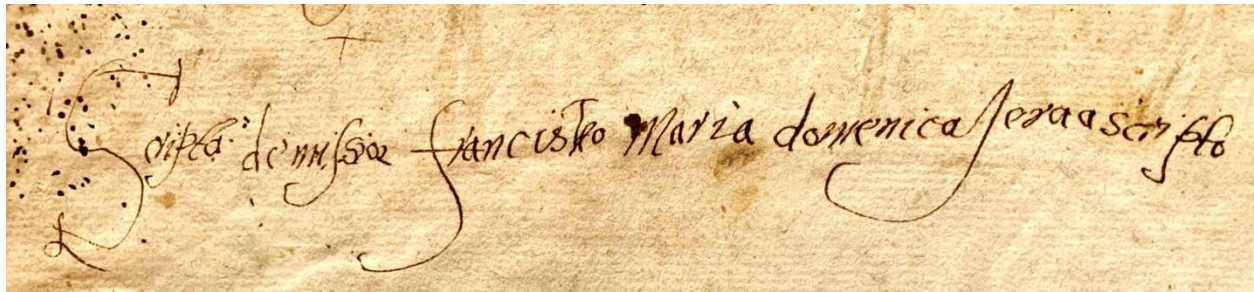 Scripta de missior francisko Maria domenica sera a scripto